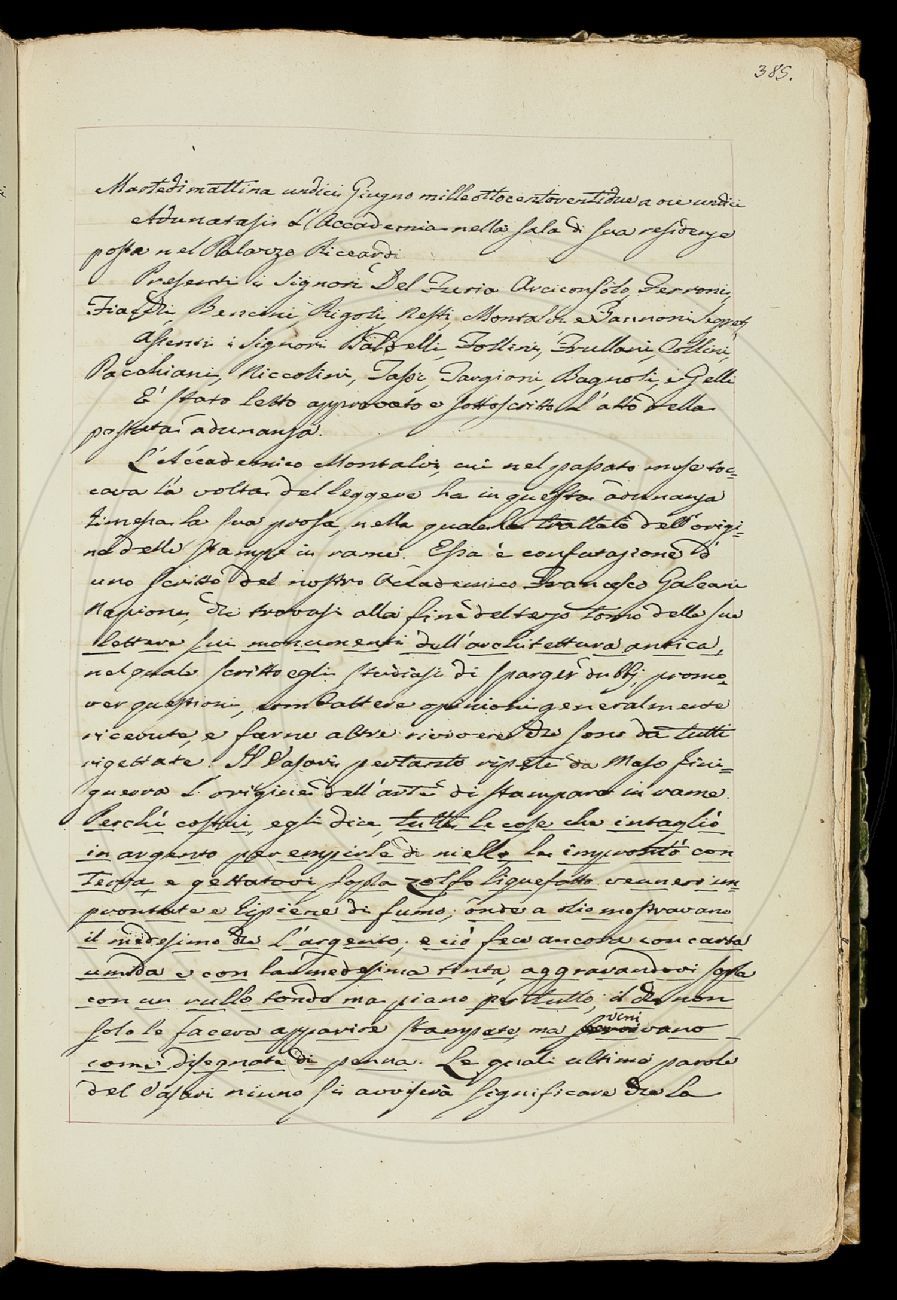 385.
Martedi mattina undici Giugno milleottocentoventidue a ore undici
Adunatasi L'Accademia nella sala di sua residenza
posta nel Palazzo Riccardi
Presenti i Signori Del Furia Arciconsolo, Ferroni,
Fiacchi, Bencini, Rigoli, Nesti, Montalvi e Zannoni Segret.
Assenti i Signori Baldelli, Follini, Frullani, Collini,
Pacchiani, Niccolini, Tassi, Targioni, Bagnoli, e Gelli
E' stato letto approvato e sottoscritto L'atto della
passata adunanza.
L'Accademico Montalvi, cui nel passato mese toc=
cava la volta del leggere ha in questa adunanza
rimessa la sua prosa, nella quale ha trattato dell'origi=
ne delle stampe in rame. Essa è confutazione d'
uno scritto del nostro Accademico Francesco Galeani
Napione, che trovasi alla fine del terzo tomo delle sue
lettere sui monumenti dell'architettura antica,
nel quale scritto egli studiasi di sparger dubbj, promo=
ver questioni, combattere opinioni generalmente
ricevute, e farne altre rivivere che sono da tutti
rigettate. Il Vasari pertanto ripete da Maso Fini=
guerra L'origine dell'arte di stampare in rame.
Perchè costui, egli dice, tutte le cose che intagliò
in argento per empierle di niello, le improntò con
Terra, e gettatovi sopra zolfo liquefatto vennero im
prontate e ripiene di fumo; onde a olio mostravano
il medesimo che L'argento; e ciò fece ancora con carta
umida e con la medesima tinta, aggravandovi sopra
con un rullo tondo ma piano per tutto; il che non
solo le faceva apparire stampate, ma venivano
come disegnate di penna. Le quali ultime parole
del Vasari niuno si avviserà significare che La